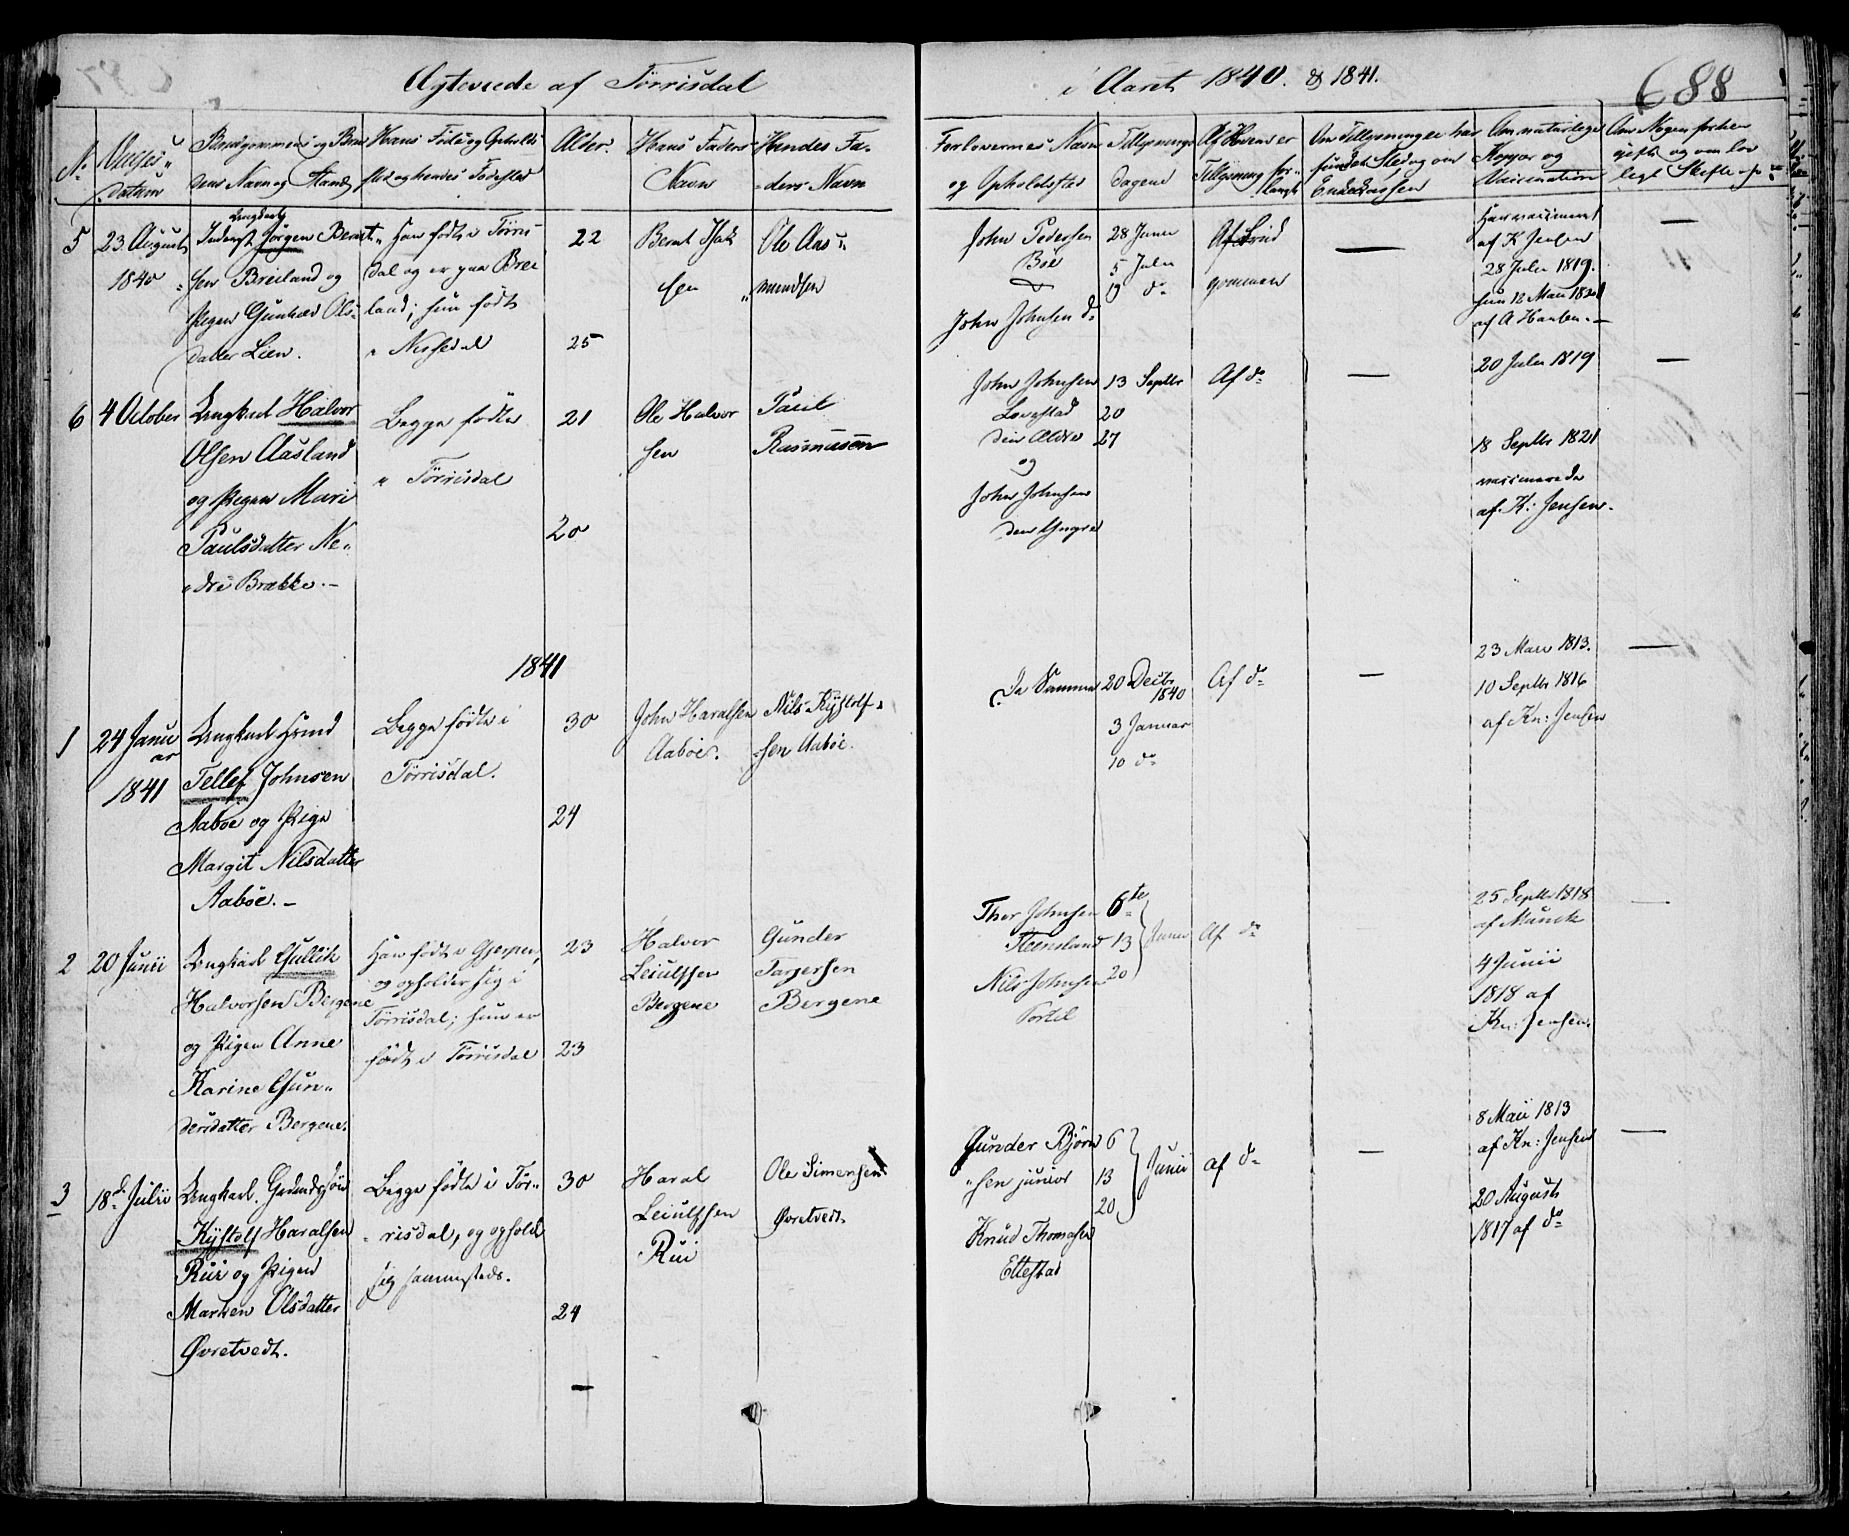 Ægteviede af Tørrisdal
i Aaret 1840. & 1841.
688
No
Vielses-
Datum
Brudgommens og Bru-
dens Navn og Stand
Hans Føde og Opholds
sted og hendes Fødested
Alder.
Hans Faders
Navn
Hendes Fa-
ders Navn
Forlovernes Navn
og Opholdssted
Tillysnings
dagene
Af Hvem er
Tillysning for-
langt
Om Tillysningen har
fundet Sted og om
Om naturlige
Kopper og
Vaccination
Om Nogen før har
gift og om lov
ligt Skifte
5
23 August
1840
Ungkarl
Inderst Jørgen Bernt-
sen Breiland og
Pigen Gunhild Ols-
datter Lien.
Han født i Tørris
dal og er paa Brei
land; hun født
i Nissedal
22
25
Bernt Isak
sen
Ole Aas-
mundsen
John Pedersen
Bøe
John Johnsen do
28 Juni
5 Juli
19 do
Af Brud
gommen
—
Han vaccineret
af K Jensen
28 Juli 1819.
hun 12 Mai 1820
af A Hansen. —
—
6
4 October
Ungkarl Halvor
Olsen Aasland
og Pigen Mari
Paulsdatter Ne-
dre Brække. —
Begge fødte
i Tørrisdal
21
20
Ole Halvor
sen
Paul
Rasmusen
John Johnsen
Lovestad
den Ældre
og
John Johnsen
den Yngre
13 Septbr
20
27
Af do
—
20 Juli 1819
18 Septbr 1821
vaccinerede
af K: Jensen.
—
1841
1
24 Janu
ar
1841
Ungkarl
Tellef Johnsen
Aabøe og Pige
Margit Nilsdatter
Aabøe. —
Begge fødte i
Tørrisdal.
30
24
John Haralsen
Aabøe.
Nils Kystolf-
sen Aabøe.
De Samme
20 Decbr
1840
3 Januar
10 do
Af do
—
23 Mai 1813.
10 Septbr 1816
af Kn: Jensen
—
2
20 Junii
Ungkarl Gullik
Halvorsen Bergene
og Pigen Anne
Karine Gun-
dersdatter Bergene.
Han født i Gjerpen,
og opholder sig i
Tørrisdal; hun er
født i Tørrisdal
23
23
Halvor
Leiulfsen
Bergene
Gunder
Tarjersen
Bergene
Thor Johnsen
Steensland
Nils Johnsen
6te
13
20
Junii
Af do
25 Septbr 1818
af Munch
4 Junii
1818 af
Kn: Jensen.
—
3
18de Julii
Ungkarl.
Kystolf Haralsen
Rui og Pigen
Marken Olsdatter
Øvretvedt.
Begge fødte i Tør-
risdal, og opholde
sig sammesteds.
30
24
—
Haral
Leiulfsen
Rui
Ole Simensen
Øvretvedt.
Gunder Bjørn
sen junior
Knud Thomasen
Ettestad
6
13
20
Junii
Af do
—
8 Maii 1813
af Kn: Jensen
20 August
1817 af do
—